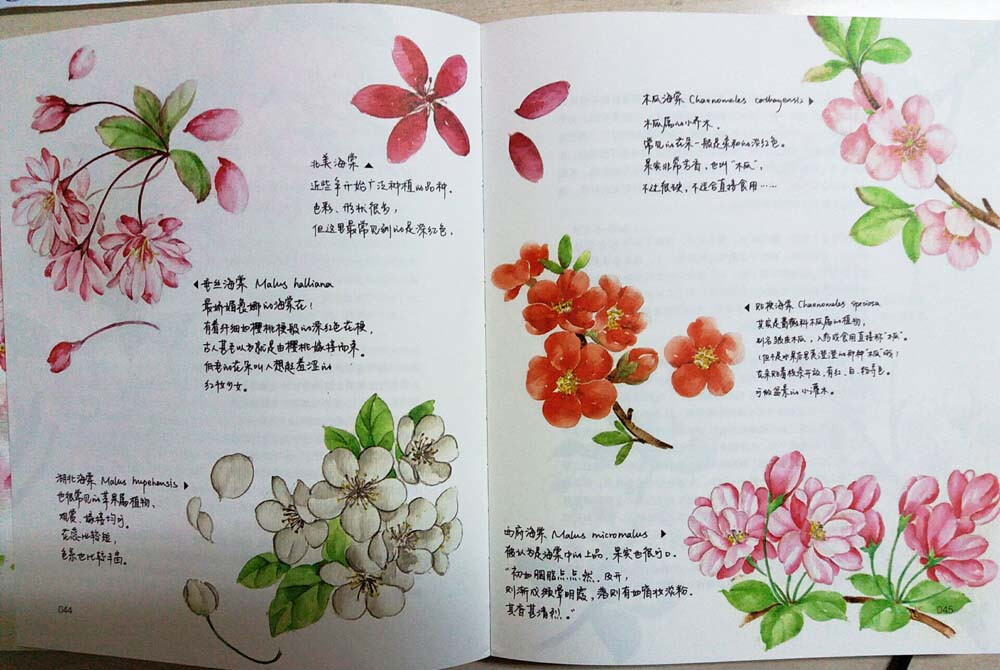 北美海棠
近些年开始广泛种植的品种.
色彩、形状很多,
但这里最常见到的是深红色.
垂丝海棠 Malus halliana
最娇媚袅娜的海棠花!
有着纤细如樱桃梗般的深红色花梗,
古人甚至以为就是由樱桃嫁接而来。
低垂的花朵叫人想起羞涩的
红妆少女。
湖北海棠 Malus hupehensis
也很常见的苹果属植物、
观赏、嫁接均可。
花瓣比较短,
色系也比较丰富。
044
木瓜海棠 Chaenomeles cathayensis
木瓜属的小乔木.
常见的花朵一般是柔和的淡红色。
果实非常芳香,也叫"木瓜",
不过很硬,不适合直接食用……
贴梗海棠 Chaenomeles speciosa
其实是蔷薇科木瓜属的植物,
别名皱皮木瓜,入药或食用直接称"木瓜"。
花朵贴着枝条开放,有红、白、粉等色。
可做盆景的小灌木。
西府海棠 Malus micromalus
被认为是海棠中的上品,果实也很可口.
"初如胭脂点点然,及开,
则渐成缬晕明霞,落则有如宿妆淡粉.
其香甚清烈。"
045